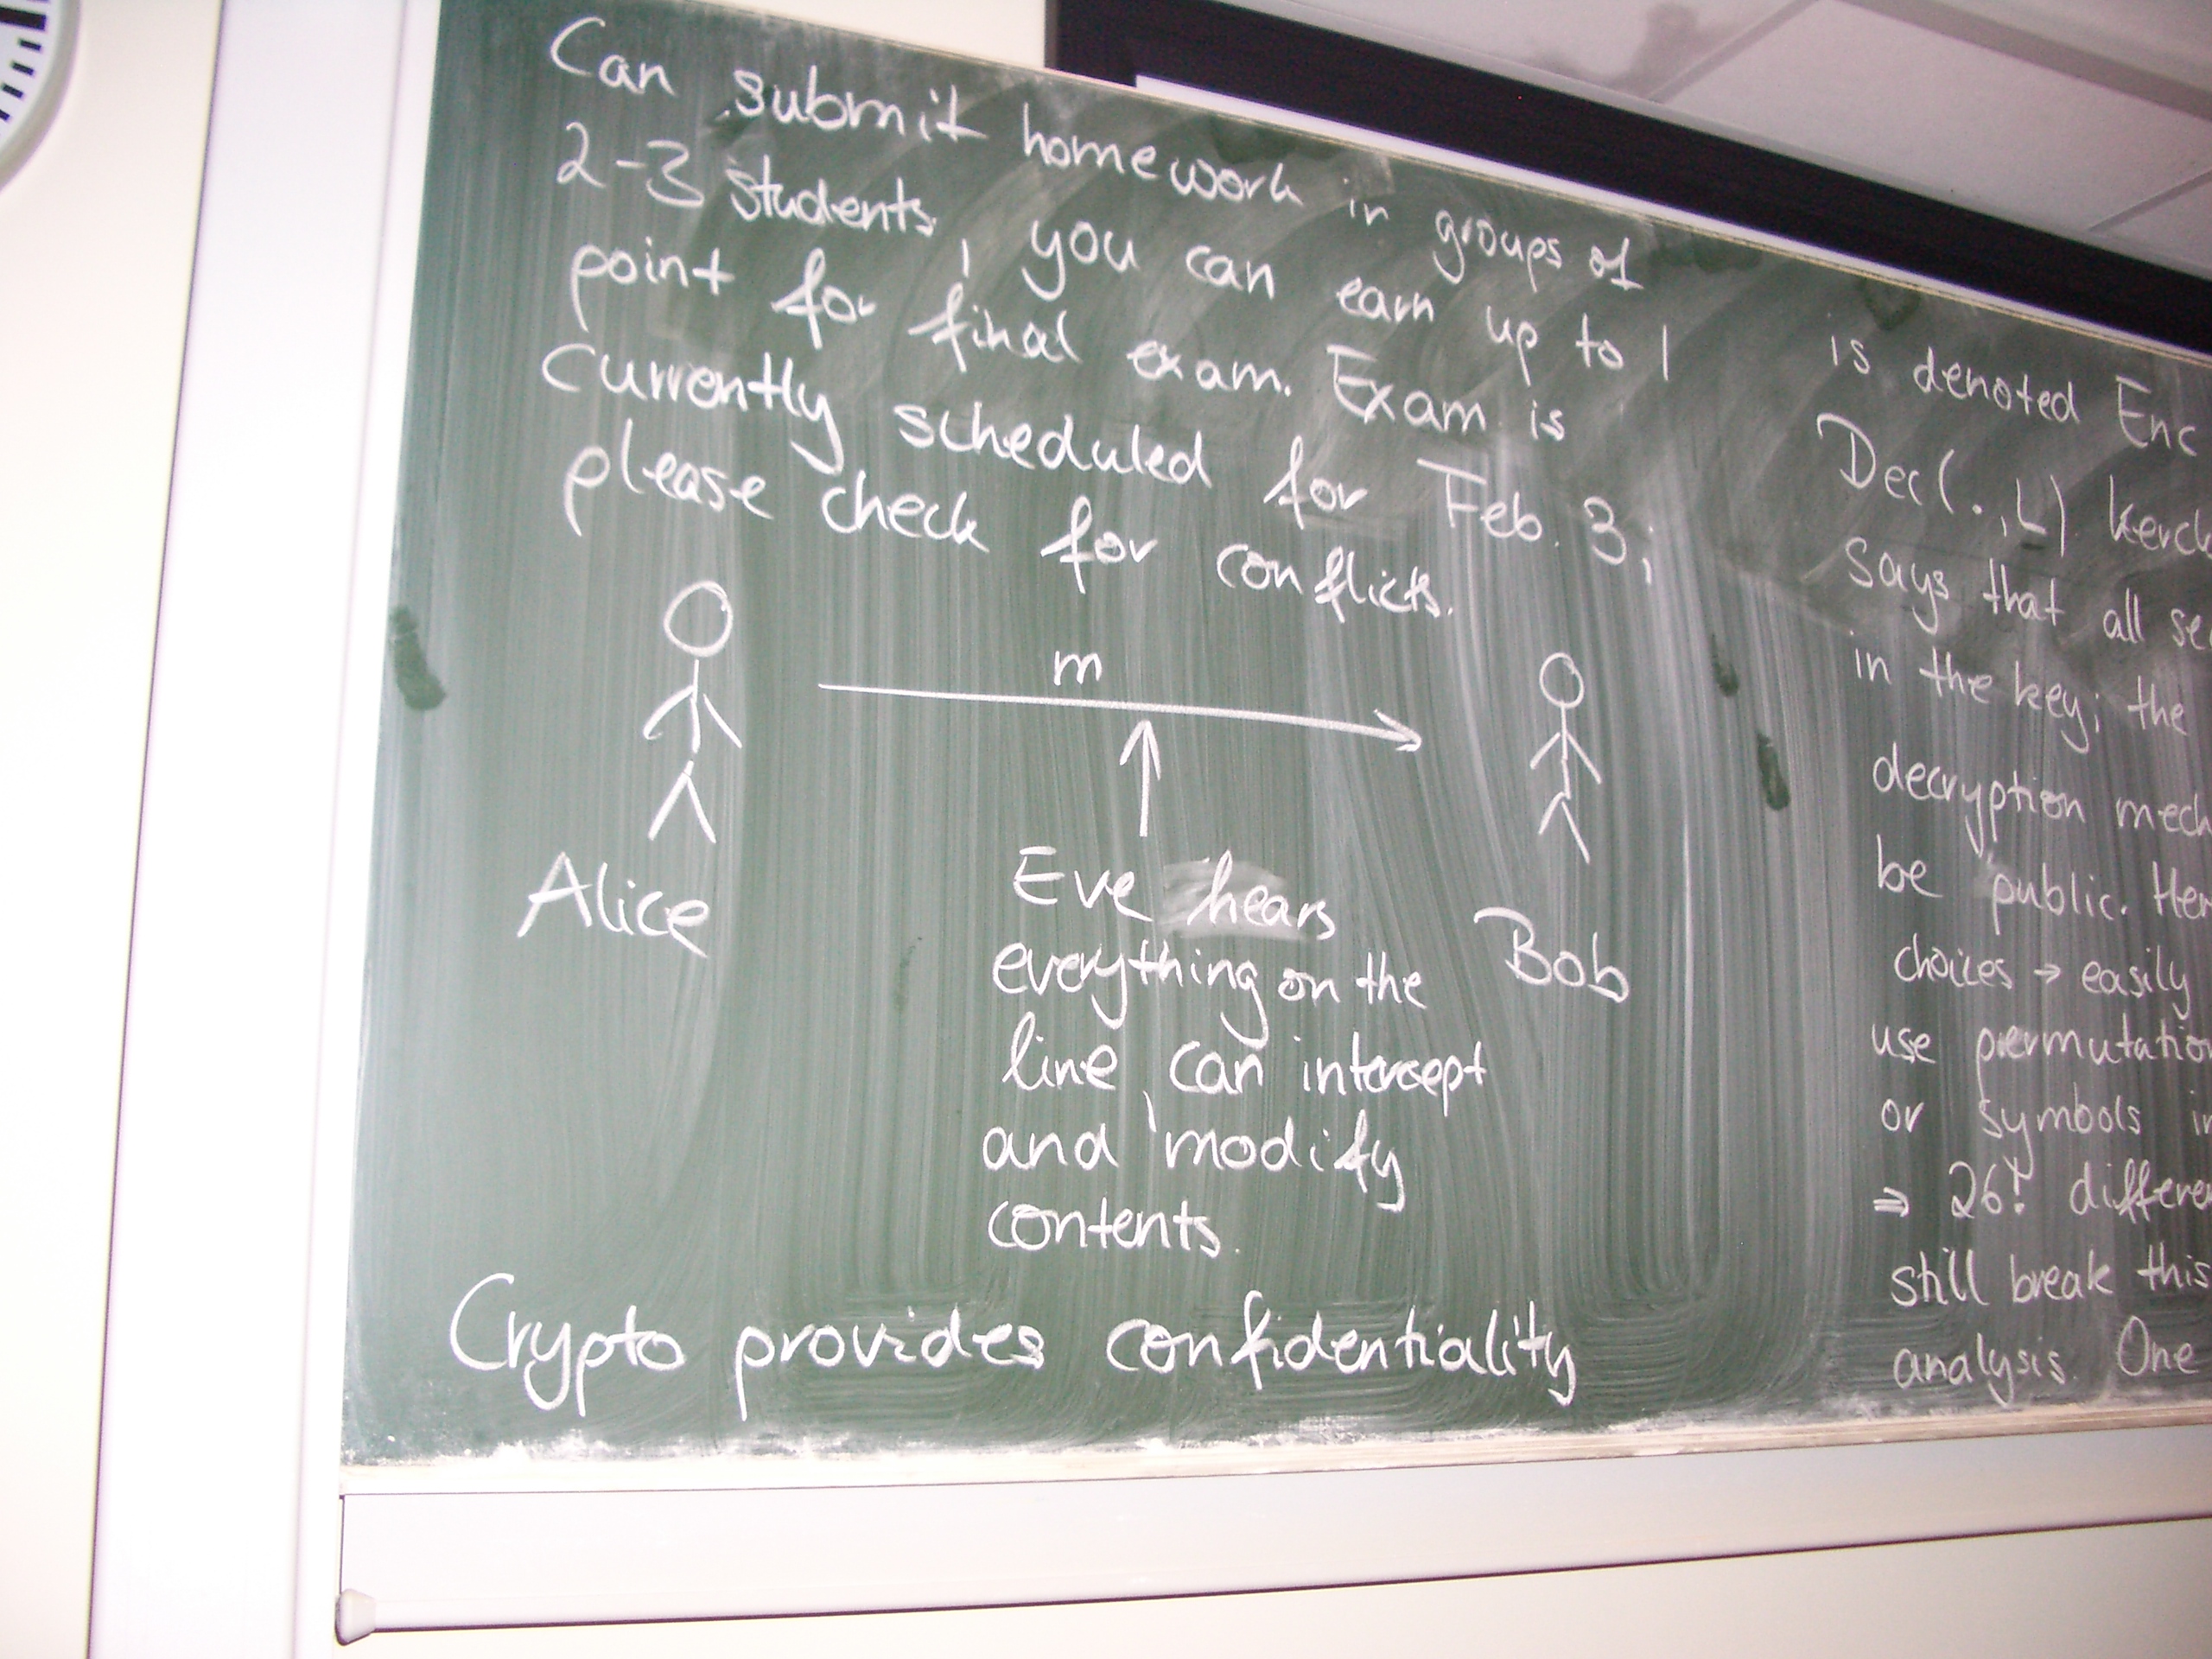 Can submit homework in groups of
2-3 students, you can earn up to 1
point for final exam. Exam is
currently scheduled for Feb. 3;
please check for conflicts.
m
Alice
Bob
Eve hears
everything on the
line, can intercept
and modify
contents.
Crypto provides confidentiality
is denoted Enc
Dec(.,L)
says that all
in the key; the
decryption
be public.
choices → easily
use permutation
or symbols
⇒ 26!
still break this
analysis. One